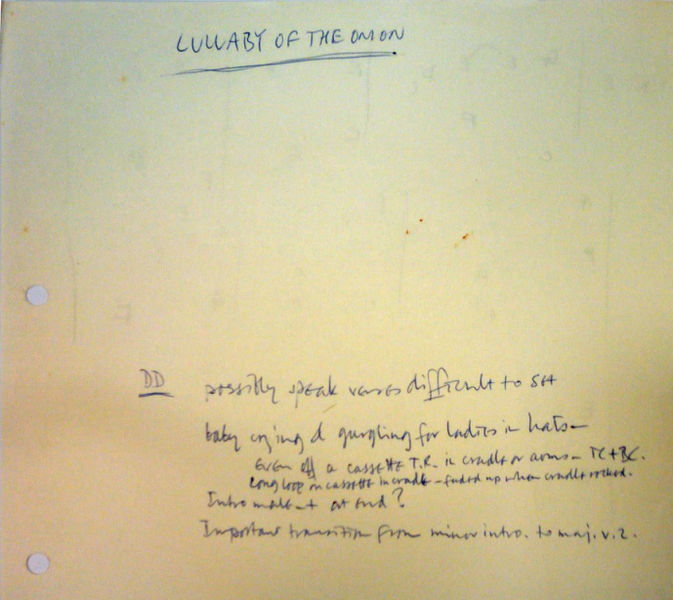 LULLABY OF THE ONION
DD possibly speak verses difficult to set
baby crying & gurgling for ladies in hats –
Even off a cassette T.R. in cradle or arms – TC + BC.
Long loop on cassette in cradle – faded up when cradle rocked.
Intro at end?
Important transition from minor intro. to maj. v. 2.